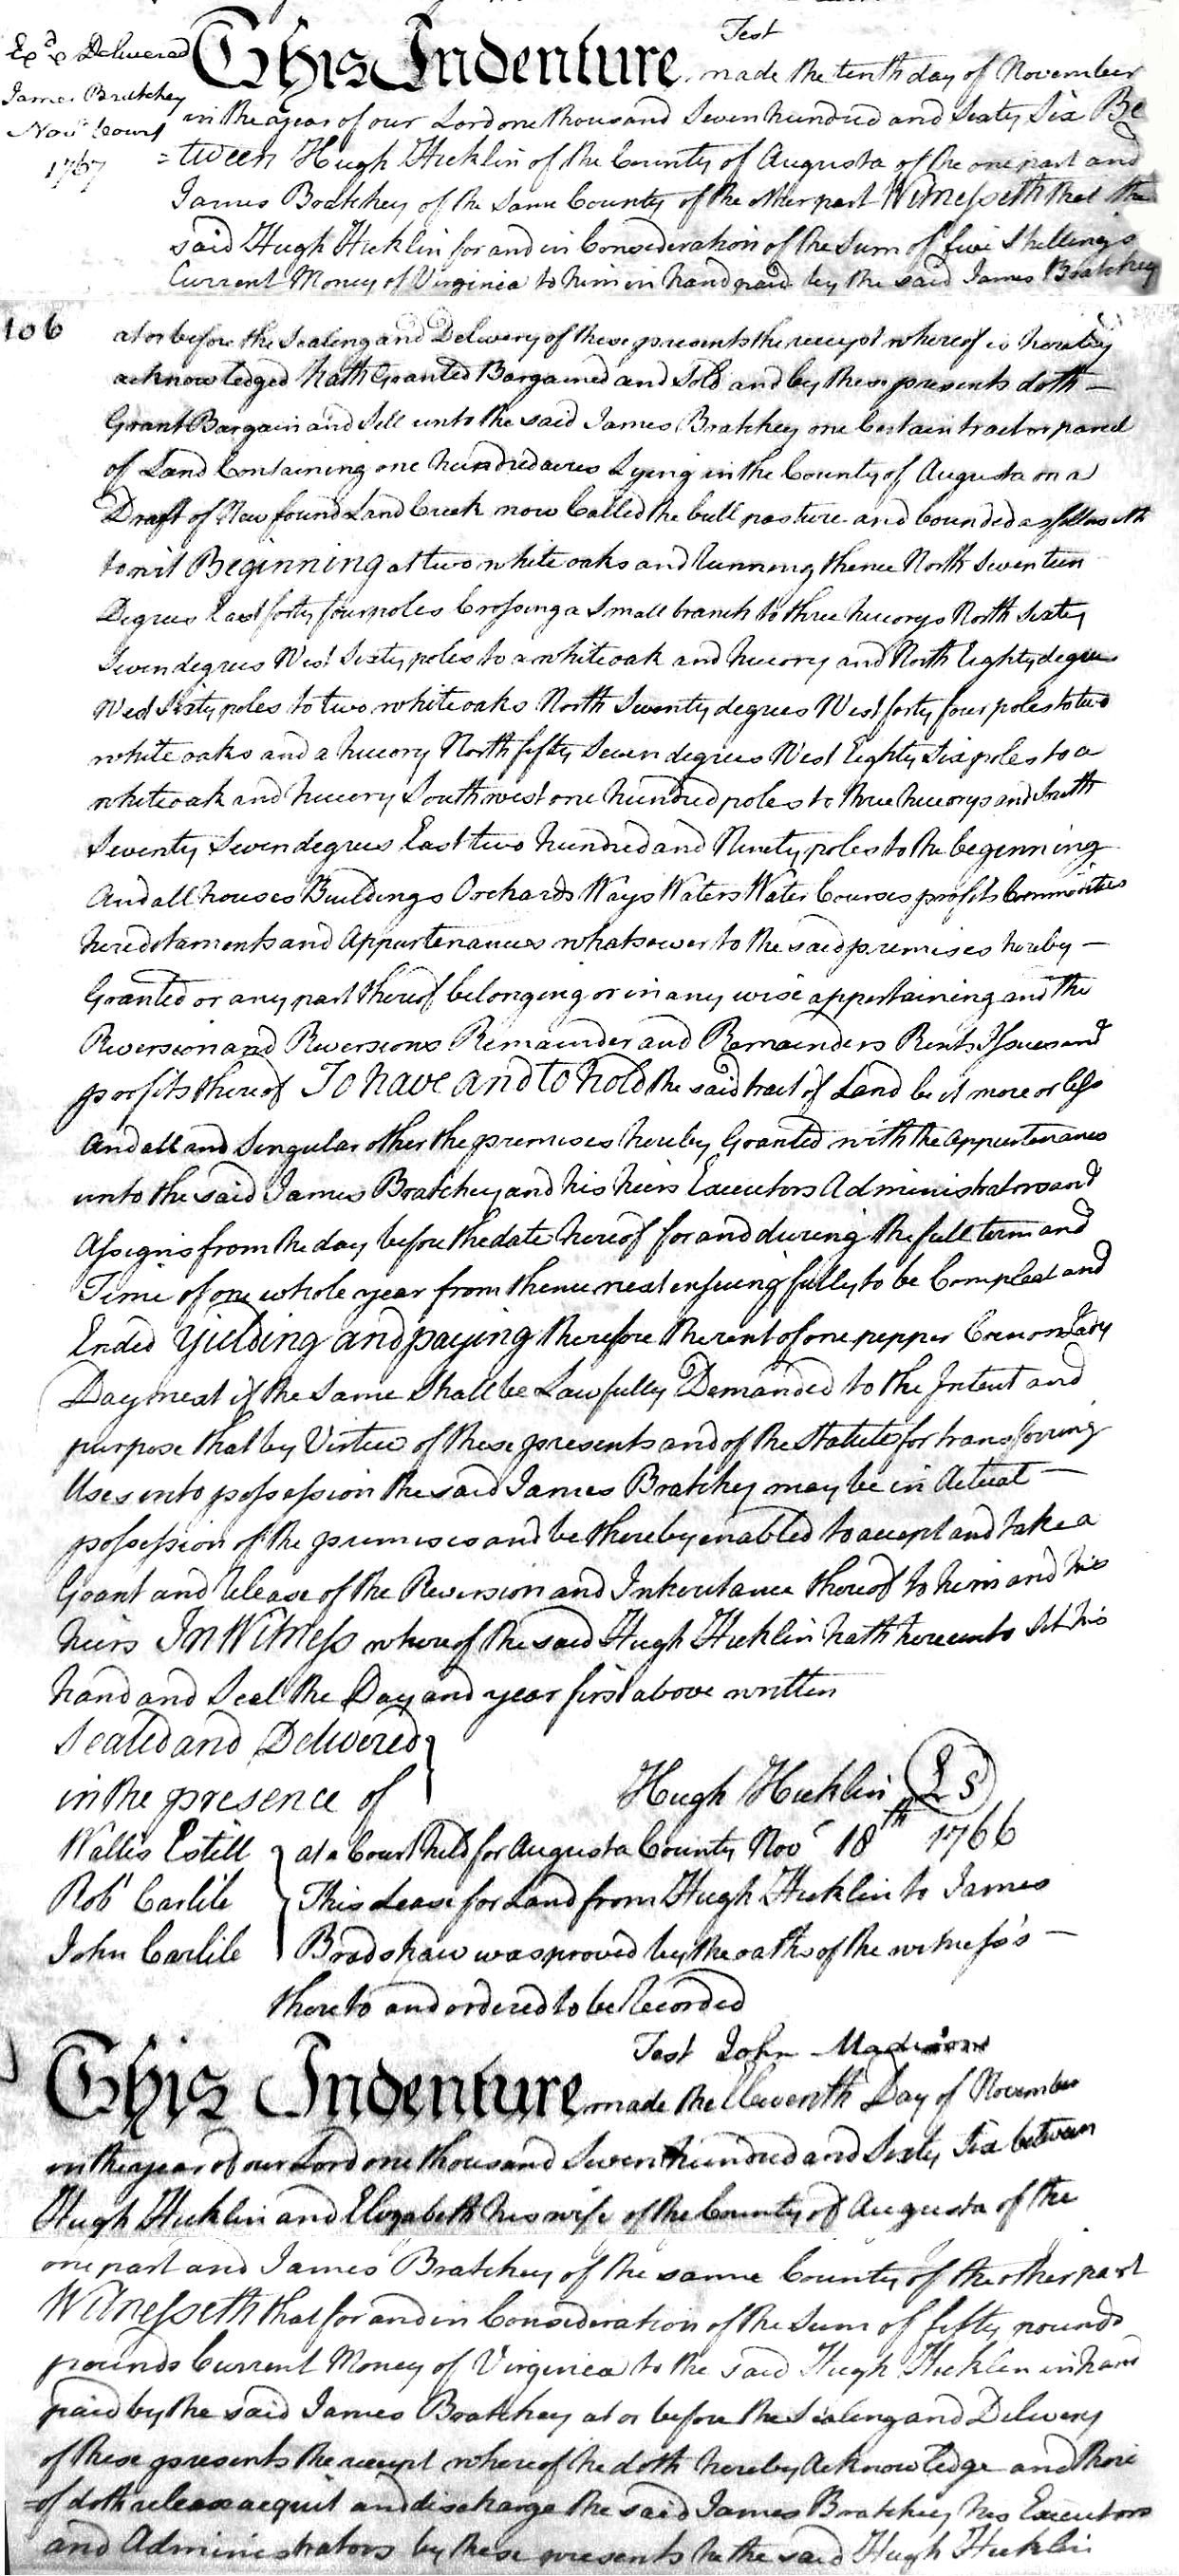 Test
Exd & Delivered
James Bratchey
Novr Court
1767
This Indenture made the tenth day of November
in the year of our Lord one thousand Seven hundred and Sixty Six Be
=tween Hugh Hicklin of the County of Augusta of the one part and
James Bratchey of the Same County of the other part Witnesseth that the
said Hugh Hicklin for and in Consideration of the Sum of five Shillings
Current Money of Virginia to him in hand paid by the said James Bratchey
106
at or before the Sealing and Delivery of these presents the receipt whereof is hereby
acknowledged hath Granted Bargained and Sold and by these presents doth —
Grant Bargain and Sell unto the said James Bratchey one Certain tract or parcel
of Land Containing one hundred acres Lying in the County of Augusta on a
Draft of New found Land Creek now Called the bull pasture and bounded as followeth
to wit Beginning at two white oaks and Running thence North Seventeen
Degrees East forty four poles Crossing a Small branch to three hicorys North Sixty
Seven degrees West Sixty poles to a white oak and hicory and North Eighty degrees
West Sixty poles to two white oaks North Seventy degrees West forty four poles to two
white oaks and a hicory North fifty Seven degrees West Eighty Six poles to a
white oak and hicory South west one hundred poles to three hicorys and South
Seventy Seven degrees East two hundred and Ninety poles to the beginning
And all houses Buildings Orchards Ways Waters Water Courses profits Commodities
hereditaments and Appurtenances whatsoever to the said premises hereby —
Granted or any part thereof belonging or in any wise appertaining and the
Reversion and Reversions Remainder and Remainders Rents Issues and
profits thereof To have and to hold the said tract of Land be it more or less
And all and Singular other the premises hereby Granted with the Appurtenances
unto the said James Bratchey and his heirs Executors Administrators and
Assigns from the day before the date hereof for and during the full term and
Time of one whole year from thence next ensuing fully to be Compleat and
Ended Yielding and paying therefore the rent of one pepper Corn on Lady
Day next if the Same Shall be Lawfully Demanded to the Intent and
purpose that by Virtue of these presents and of the Statute for transferring
Uses into possession the said James Bratchey may be in Actual —
possession of the premises and be thereby enabled to accept and take a
Grant and Release of the Reversion and Inheritance thereof to him and his
heirs In Witness whereof the said Hugh Hicklin hath hereunto Set his
hand and Seal the Day and year first above written
Sealed and Delivered
in the presence of
Hugh Hicklin L S
Wallis Estill
Robt Carlile
John Carlile
at a Court held for Augusta County Novr 18th 1766
This Lease for Land from Hugh Hicklin to James
Bradshaw was proved by the oaths of the witness's —
thereto and ordered to be Recorded
Test John Madison
This Indenture made the Eleventh Day of November
in the year of our Lord one thousand Seven hundred and Sixty Six between
Hugh Hicklin and Elizabeth his wife of the County of Augusta of the
one part and James Bratchey of the same County of the other part
Witnesseth that for and in Consideration of the Sum of fifty pounds
pounds Current Money of Virginia to the said Hugh Hicklin in hand
paid by the said James Bratchey at or before the Sealing and Delivery
of these presents the receipt whereof he doth hereby Acknowledge and there
=of doth release acquit and discharge the said James Bratchey his Executors
and Administrators by these presents he the said Hugh Hicklin